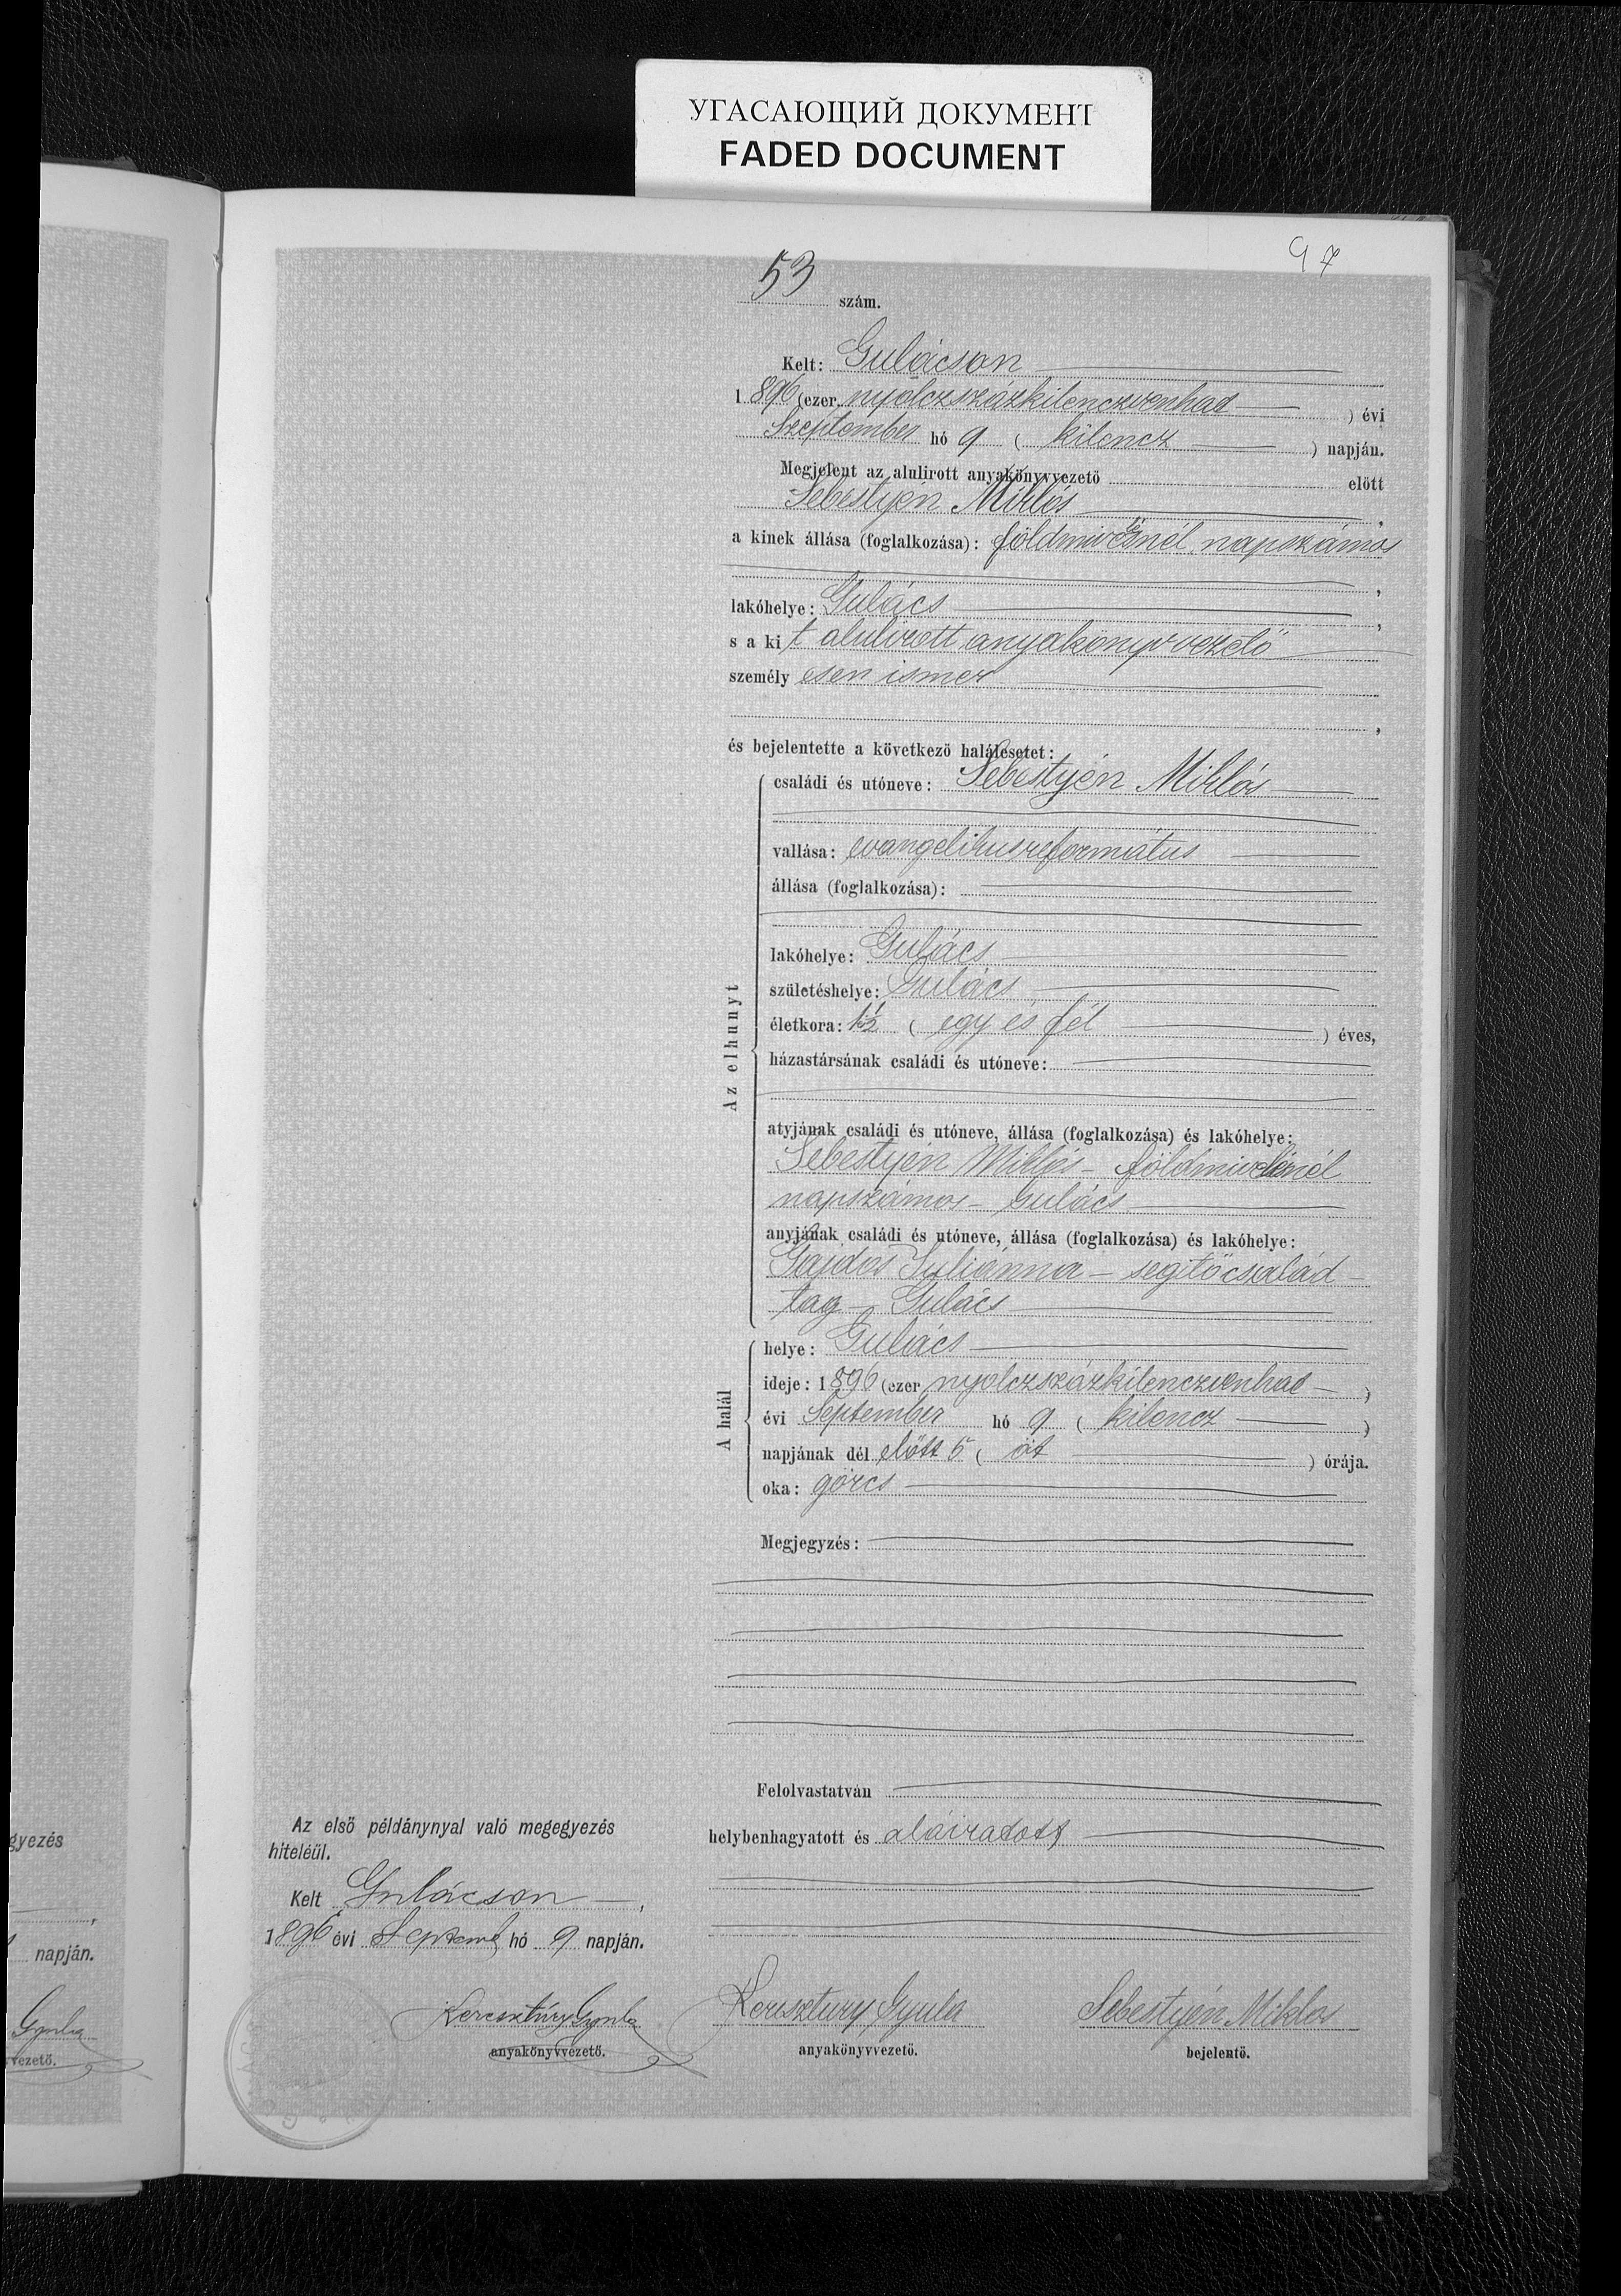 УГАСАЮЩИЙ ДОКУМЕНТ
FADED DOCUMENT
97
53 szám.
Kelt: Gulácson
1896 (ezer nyolczszázkilenczvenhat) évi
Szeptember hó 9 (kilencz) napján.
Megjelent az alulirott anyakönyvvezető előtt
Sebestyén Miklós,
a kinek állása (foglalkozása): földmivesnél napszámos
,
lakóhelye: Gulács,
s a kit alulirott anyakönyvvezető
személyesen ismer
,
és bejelentette a következő halálesetet:
Az elhunyt
családi és utóneve: Sebestyén Miklós
vallása: evangelikusreformátus
állása (foglalkozása):
lakóhelye: Gulács
születéshelye: Gulács
életkora: 1½ (egy és fél) éves,
házastársának családi és utóneve:
atyjának családi és utóneve, állása (foglalkozása) és lakóhelye:
Sebestyén Miklós - földmivelőnél
napszámos - Gulács
anyjának családi és utóneve, állása (foglalkozása) és lakóhelye:
Gajdos Juliánna - segitő család-
tag - Gulács
A halál
helye: Gulács
ideje: 1896 (ezer nyolczszázkilenczvenhat)
évi September hó 9 (kilencz)
napjának dél előtt 5 (öt) órája.
oka: görcs
Megjegyzés:
Felolvastatván
helybenhagyatott és aláiratott
Az első példánynyal való megegyezés
hiteléül.
Kelt Gulácson,
1896 évi Septemb hó 9 napján.
Keresztúry Gyula
anyakönyvvezető.
Keresztury Gyula
anyakönyvvezető.
Sebestyén Miklos
bejelentő.
gyezés
,
napján.
Gyula
vvezető.